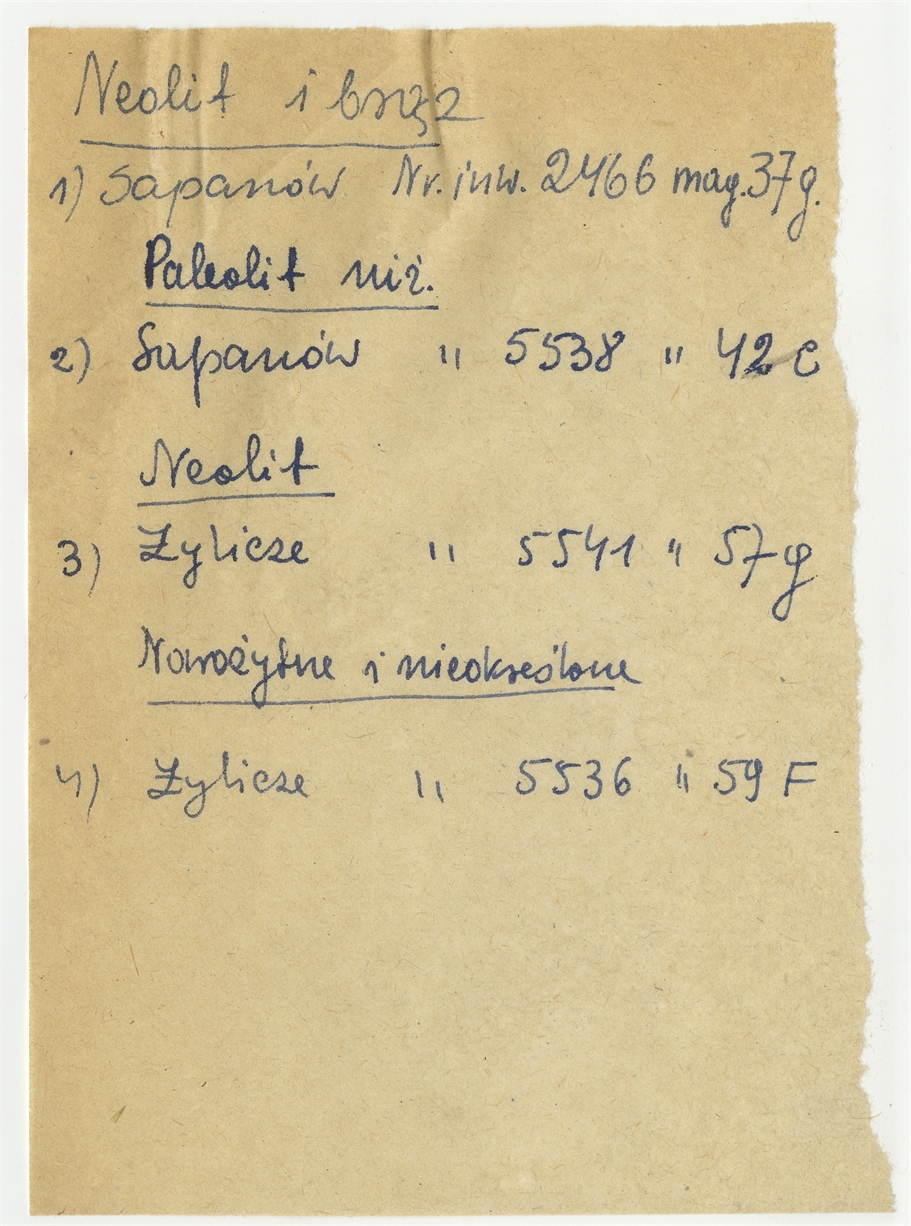 Neolit i brąz
1) Sapanów Nr. inw. 2466 mag. 37g.
Paleolit niż.
2) Sapanów " 5538 " 42 c
Neolit
3) Żylicze " 5541 " 57 g
Nowożytne i nieokreślone
4) Żylicze " 5536 " 59 F